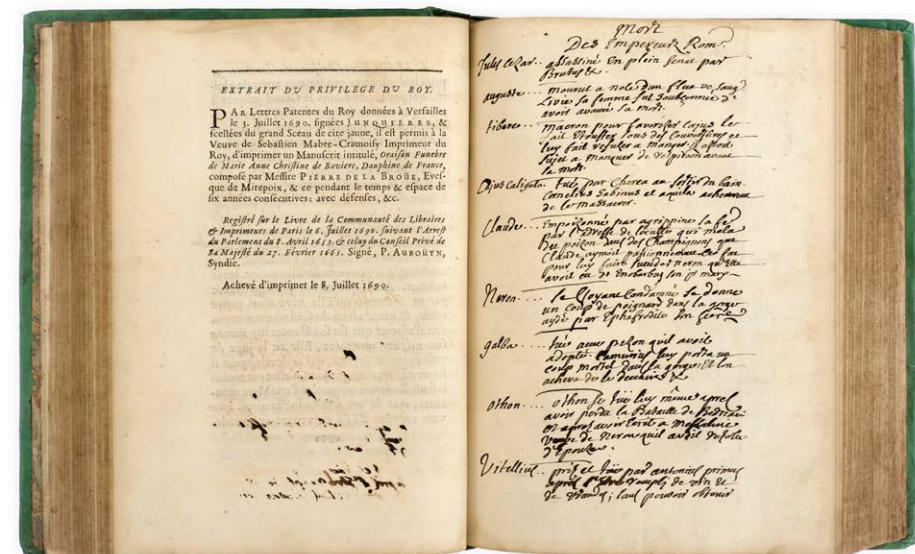 EXTRAIT DV PRIVILEGE DU ROY.
PAR Lettres Patentes du Roy données à Versailles
le 3. Juillet 1690. signées JUNQUIERES, &
scellées du grand Sceau de cire jaune, il est permis à la
Veuve de Sebastien Mabre-Cramoisy Imprimeur du
Roy, d'imprimer un Manuscrit intitulé, Oraison Funebre
de Marie Anne Christine de Baviere, Dauphine de France,
composé par Messire PIERRE DE LA BROÜE, Eves-
que de Mirepoix, & ce pendant le temps & espace de
six années consecutives: avec défenses, &c.
Registré sur le Livre de la Communauté des Libraires
& Imprimeurs de Paris le 6. Juillet 1690. suivant l'Arrest
du Parlement du 8. Avril 1653. & celuy du Conseil Privé de
Sa Majesté du 27. Février 1665. Signé, P. AUBOUYN,
Syndic.
Achevé d'imprimer le 8. Juillet 1690.
Mort
Des Empereurs Rom.
Jules Cezar.. assassiné en plein senat par
Brutus &.
auguste... mourut a nole d'un flux de sang
Livie sa femme fut soubçonnée de
avoir avancé sa mort.
tibere... macron pour favoriser Cajus le
fait étouffer sous des couvertures et
luy fait refuser a manger. il estoit
sujet a manquer de respiration avant
la mort.
Cajus Caligula. tué par Cherea au sortir du bain
Cornelius Sabinus et aquila acheverent
de le massacrer.
Claude... Empoisonné par agrippine sa fe
par l'adresse de locuste qui mela
du poison dans des champignons que
Claude aymoit passionnement
pour luy faire Neron qu'elle
avoit eu de Enobarbus son p mary
Neron... se voyant Condamné se donne
un coup de poignard dans la gorge
aydé par Ephafrodite son
galba... tué avec pison quil avoit
adopté. Camurius luy porta un
coup mortel dans la gorge et on
acheva de le
othon... othon se tüe luy même apres
avoir perdu la Bataille de Bedriac
et apres avoir ecrit a Messaline
veuve de neron quil avoit
d'Epouser.
Vitellius.. pris et tüe par antonius primus
apres s'estre rempli de vin et
de viande; sans pouvoir obtenir